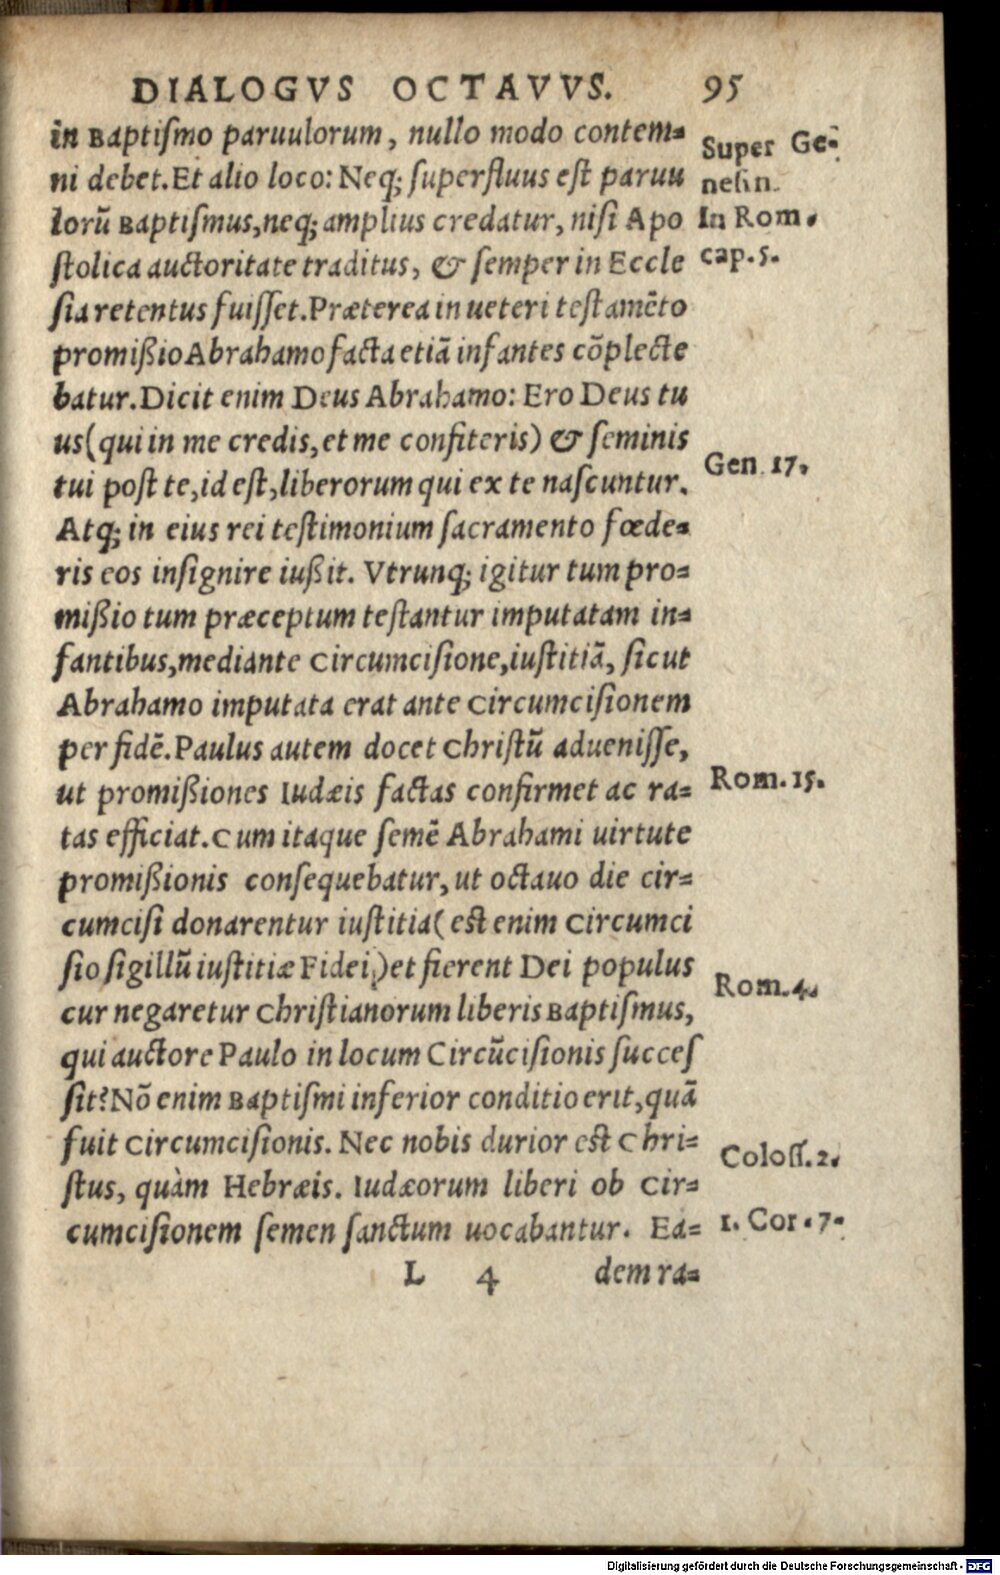 DIALOGVS OCTAVVS. 95
in Baptiſmo paruulorum, nullo modo contem-
ni debet. Et alio loco: Neq; ſuperfluus eſt paruu
lorũ Baptiſmus, neq; amplius credatur, niſi Apo
ſtolica auctoritate traditus, & ſemper in Eccle
ſia retentus fuiſſet. Præterea in ueteri teſtamẽto
promißio Abrahamo facta etiã infantes cõplecte
batur. Dicit enim Deus Abrahamo: Ero Deus tu
us (qui in me credis, et me confiteris) & ſeminis
tui poſt te, id eſt, liberorum qui ex te naſcuntur.
Atq; in eius rei teſtimonium ſacramento fœde-
ris eos inſignire iußit. Vtrunq; igitur tum pro-
mißio tum præceptum teſtantur imputatam in-
fantibus, mediante Circumciſione, iuſtitiã, ſicut
Abrahamo imputata erat ante Circumciſionem
per fidẽ. Paulus autem docet Chriſtũ adueniſſe,
ut promißiones Iudæis factas confirmet ac ra-
tas efficiat. Cum itaque ſemẽ Abrahami uirtute
promißionis conſequebatur, ut octauo die cir-
cumciſi donarentur iuſtitia (eſt enim Circumci
ſio ſigillũ iuſtitiæ Fidei,) et fierent Dei populus
cur negaretur Chriſtianorum liberis Baptiſmus,
qui auctore Paulo in locum Circũciſionis ſucceſ
ſit? Nõ enim Baptiſmi inferior conditio erit, quã
fuit Circumciſionis. Nec nobis durior eſt Chri-
ſtus, quàm Hebræis. Iudæorum liberi ob Cir-
cumciſionem ſemen ſanctum uocabantur. Ea-
L 4 dem ra-
Super Ge-
neſin.
In Rom.
cap. 5.
Gen. 17.
Rom. 15.
Rom. 4.
Coloſſ. 2.
1. Cor. 7.
Digitalisierung gefördert durch die Deutsche Forschungsgemeinschaft - DFG